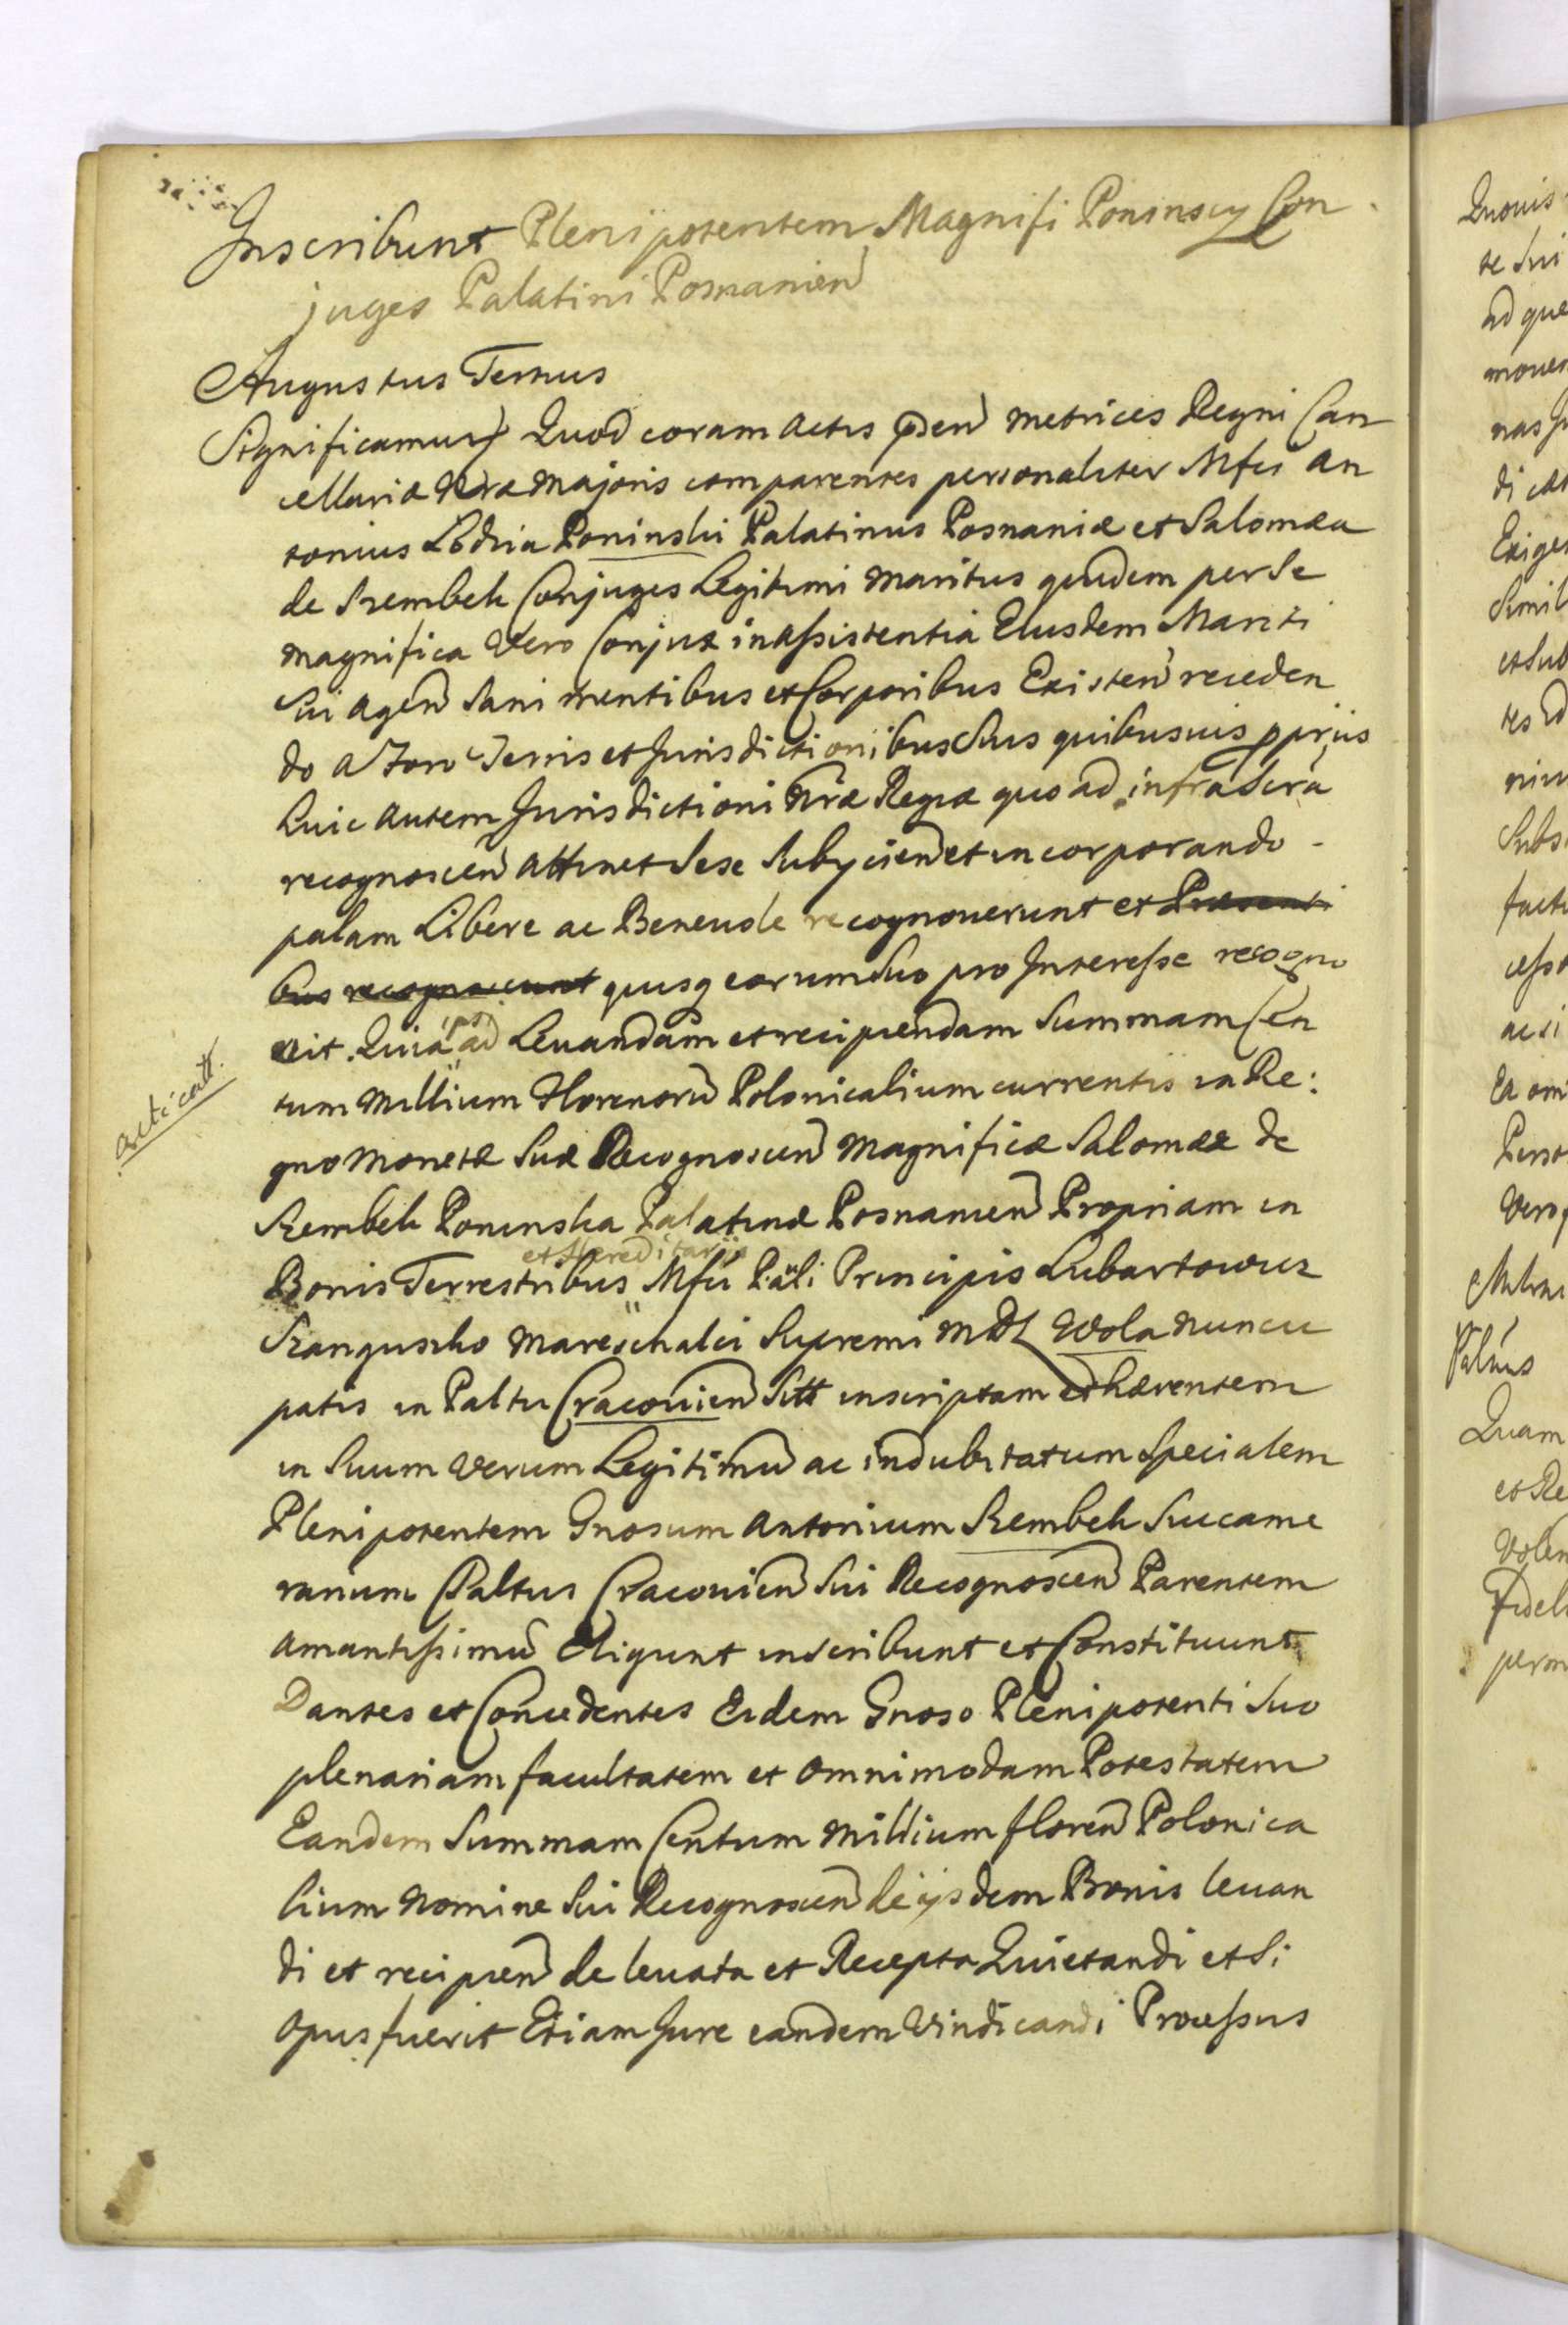 Inscribunt Plenipotentem Magnifi Poninscy Con
juges Palatini Posnanien
Augustus Tertius
Significamus Quod coram Actis pñen Metrices Regni Can
cellariæ Nræ Majoris comparentes personaliter Mfci An
tonius Lodzia Poninski Palatinus Posnaniæ et Salomæa
de Szembek Conjuges Legitimi Maritus quidem per Se
Magnifica Vero Conjux in Assistentia Eiusdem Mariti
Sui agen Sani Mentibus et Corporibus Existen receden
do a Foro Terris et Jurisdictionibus Suis quibusvis pprijs
huic autem Jurisdictioni Nræ Regiæ quo ad infrascra
recognoscen attinet Sese Subijcien et incorporando -
palam Libere ac Benevole recognoverunt et Præsenti
bus recognoscunt quisq eorum Suo pro Interesse recogno
vit. Quia ipsi ad Levandam et recipiendam Summam Cen
tum Millium Florenorũ Polonicalium currentis in Re:
gno Monetæ Suæ Recognoscen Magnificæ Salomææ de
articatt.
Szembek Poninska Palatinæ Posnanien Propriam in
et Hereditarijs
Bonis Terrestribus Mfci Pauli Principis Lubartowicz
Sanguszko Mareschalci Supremi MDL Wola Nuncu
patis in Paltu Cracovien Sitt inscriptam et hærentem
in Suum Verum Legitimũ ac indubitatum Specialem
Plenipotentem Gnosum Antonium Szembek Succame
rarium Paltus Cracovien Sui Recognoscen Parentem
Amantissimũ Eligunt inscribunt et Constituunt
Dantes et Concedentes Eidem Gnoso Plenipotenti Suo
plenariam facultatem et Omnimodam Potestatem
Eandem Summam Centum Millium floren Polonica
lium Nomine Sui Recognoscen de ijsdem Bonis levan
di et recipien de levata et Recepta Quietandi et Si
Opus fuerit Etiam Jure eandem Vindicandi Processus
Quovis
te Sui
ad que
mover
nas Ju
di cat
Exige
Simil
et Sub
tes
Subs
facta
cesso
ac si
Ea om
Perso
Vero
Paltus
Quam
et Re
Volen
fideli
perm